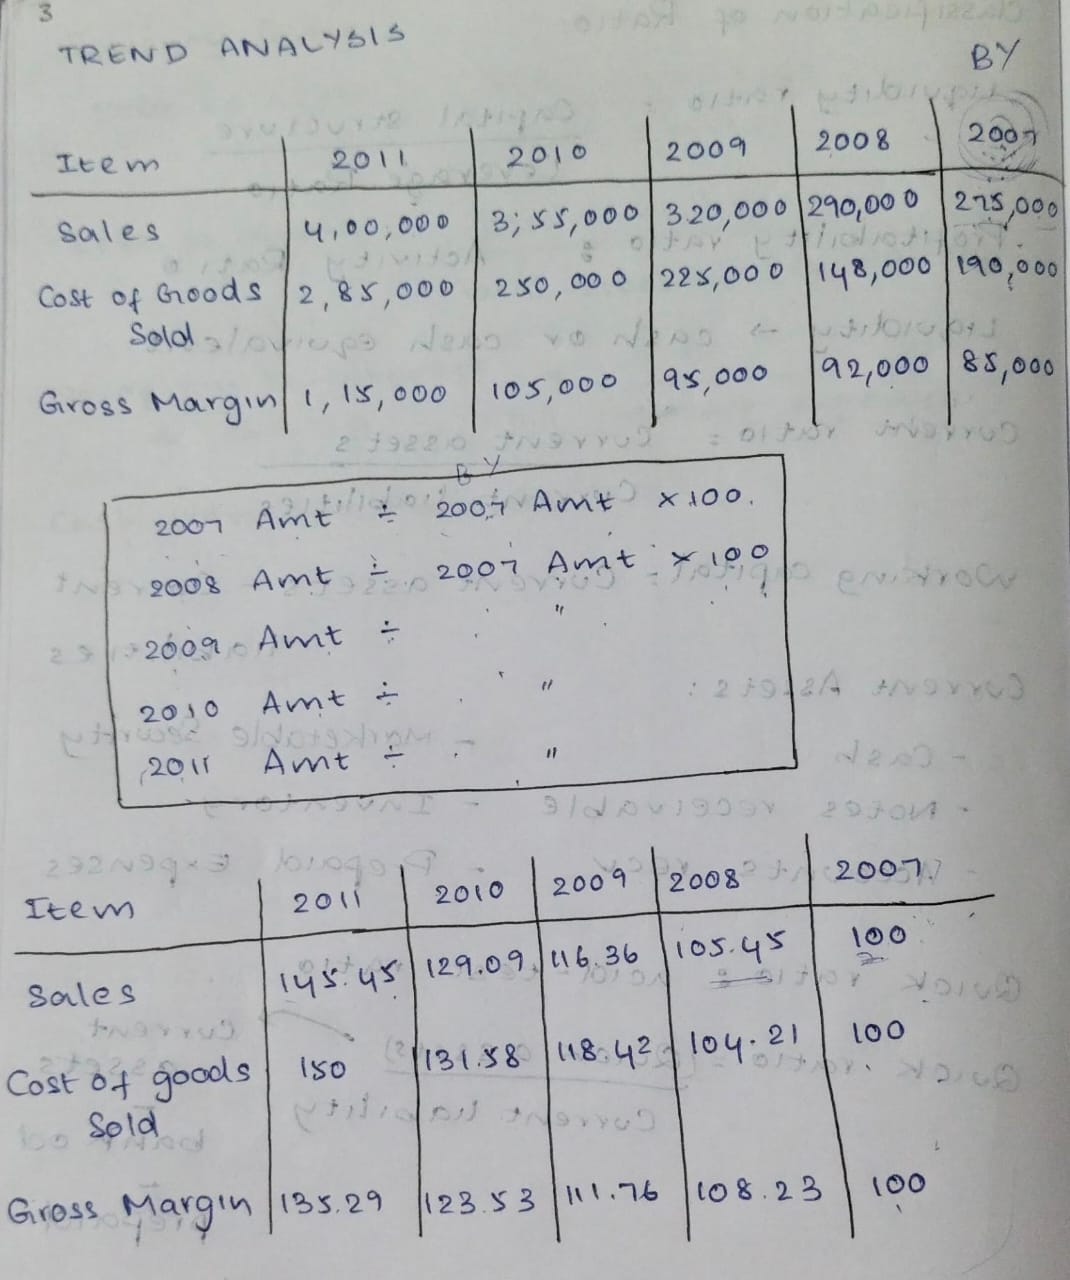 3
TREND ANALYSIS
BY
Item 2011 2010 2009 2008 2007
Sales 4,00,000 3,55,000 320,000 290,000 275,000
Cost of Goods 2,85,000 250,000 225,000 148,000 190,000
Sold
Gross Margin 1,15,000 105,000 95,000 92,000 85,000
BY
2007 Amt ÷ 2007 Amt × 100.
2008 Amt ÷ 2007 Amt × 100
2009 Amt ÷ "
2010 Amt ÷ "
2011 Amt ÷ "
Item 2011 2010 2009 2008 2007
Sales 145.45 129.09 116.36 105.45 100
Cost of goods 150 131.58 118.42 104.21 100
Sold
Gross Margin 135.29 123.53 111.76 108.23 100